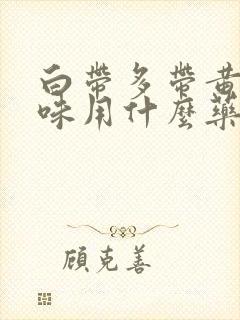 白帶多帶黃
味用什麼藥
顧克善